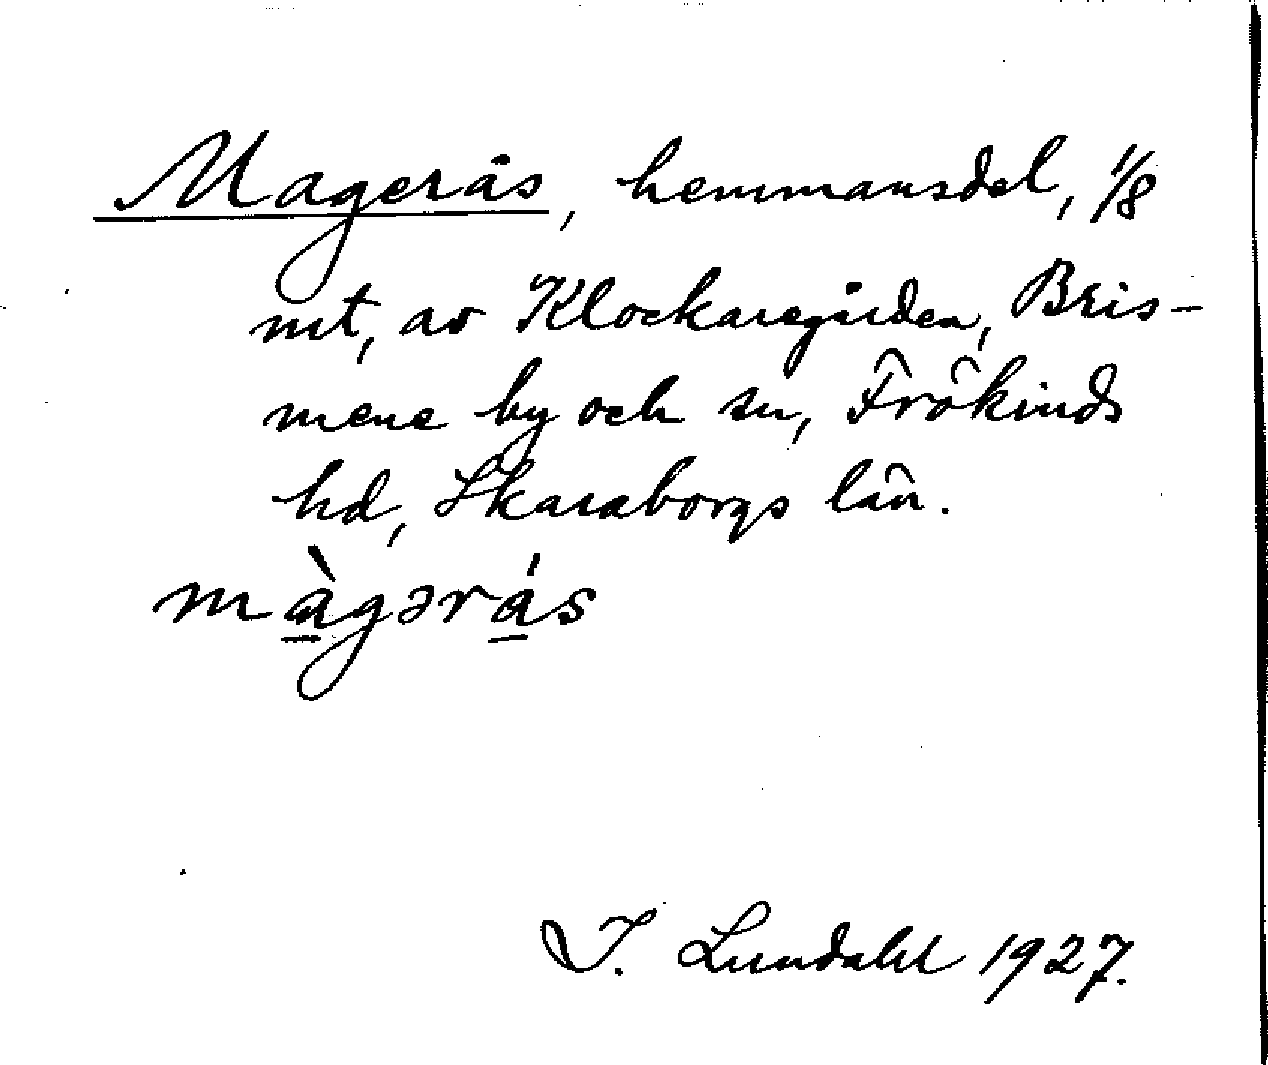 Magerås, hemmansdel, 1/8
mt, av Klockaregården, Bris-
mene by och sn, Frökinds
hd, Skaraborgs län.
màgərás
I. Lundahl 1927.